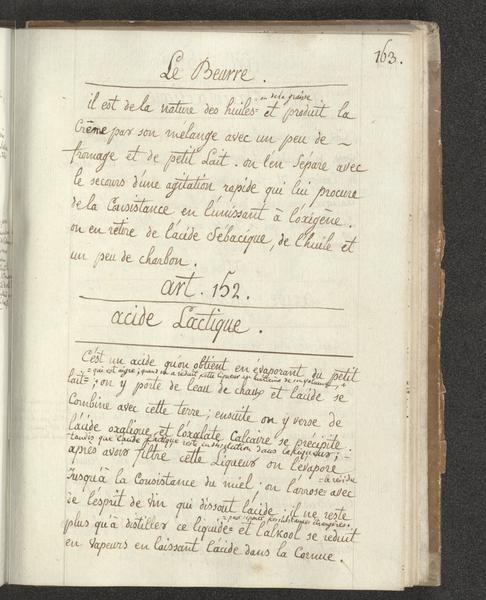 163.
Le Beurre.
ou de la graisse
il est de la nature des huiles= et produit la
Crême par son mélange avec un peu de
fromage et de petit Lait. on l'en Sépare avec
le secours d'une agitation rapide qui lui procure
de la Consistance en l'unissant à l'oxigène.
on en retire de l'acide Sebacique, de l'huile et
un peu de charbon.
art. 152.
acide Lactique.
C'est un acide qu'on obtient en évaporant du petit
= qui est aigre; quand on a réduit cette liqueur au huitieme de son volume,
lait=; on y porte de l'eau de chaux et l'acide se
Combine avec cette terre; ensuite on y verse de
l'acide oxalique et l'oxalate Calcaire se précipite;
tandis que l'acide lactique reste en dissolution dans la liqueur;
après avoir filtré cette Liqueur on l'évapore
Jusqu'à la Consistance du miel. on l'arrose avec
de l'esprit de vin qui dissout l'acide; il ne reste
plus qu'à distiller ce liquide= et l'alkool se réduit
en vapeurs en laissant l'acide dans la Cornue.